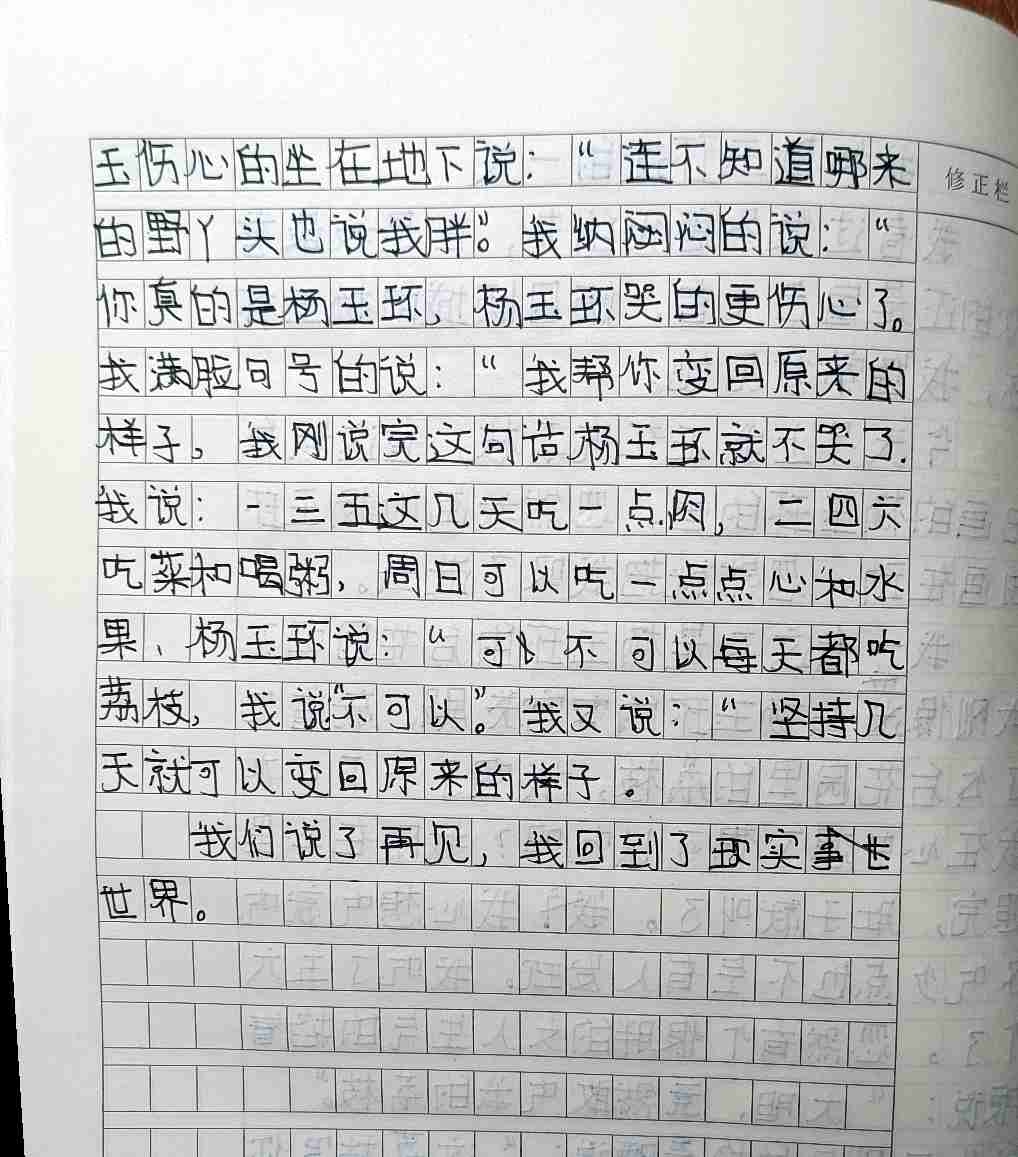 玉伤心的坐在地下说：“连不知道哪来
修正栏
的野丫头也说我胖”。我纳闷闷的说：“
你真的是杨玉环，杨玉环哭的更伤心了。
我满脸句号的说：“我帮你变回原来的
样子，我刚说完这句话杨玉环就不哭了.
我说：一三五这几天吃一点肉，二四六
吃菜和喝粥，周日可以吃一点点心和水
果、杨玉环说：“可以不可以每天都吃
荔枝，我说“不可以”。我又说：“坚持几
天就可以变回原来的样子。
我们说了再见，我回到了现实事世
世界。